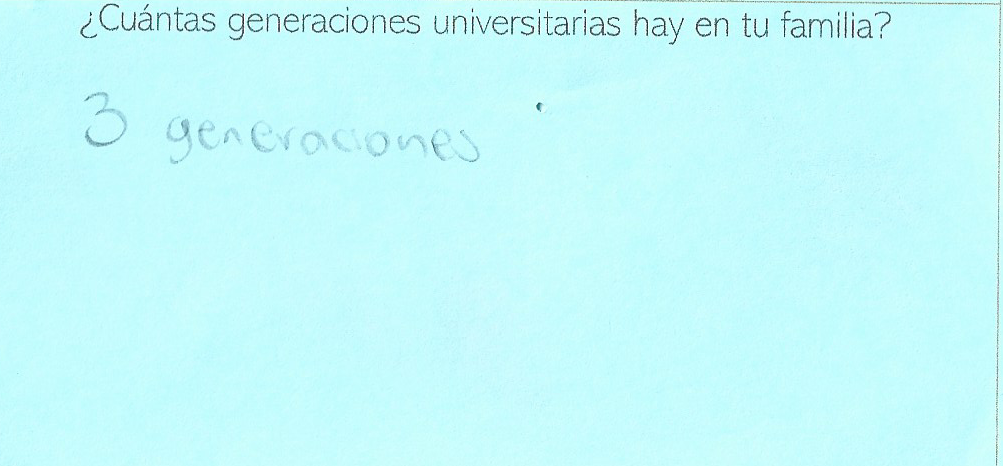 ¿Cuántas generaciones universitarias hay en tu familia?
3 generaciones